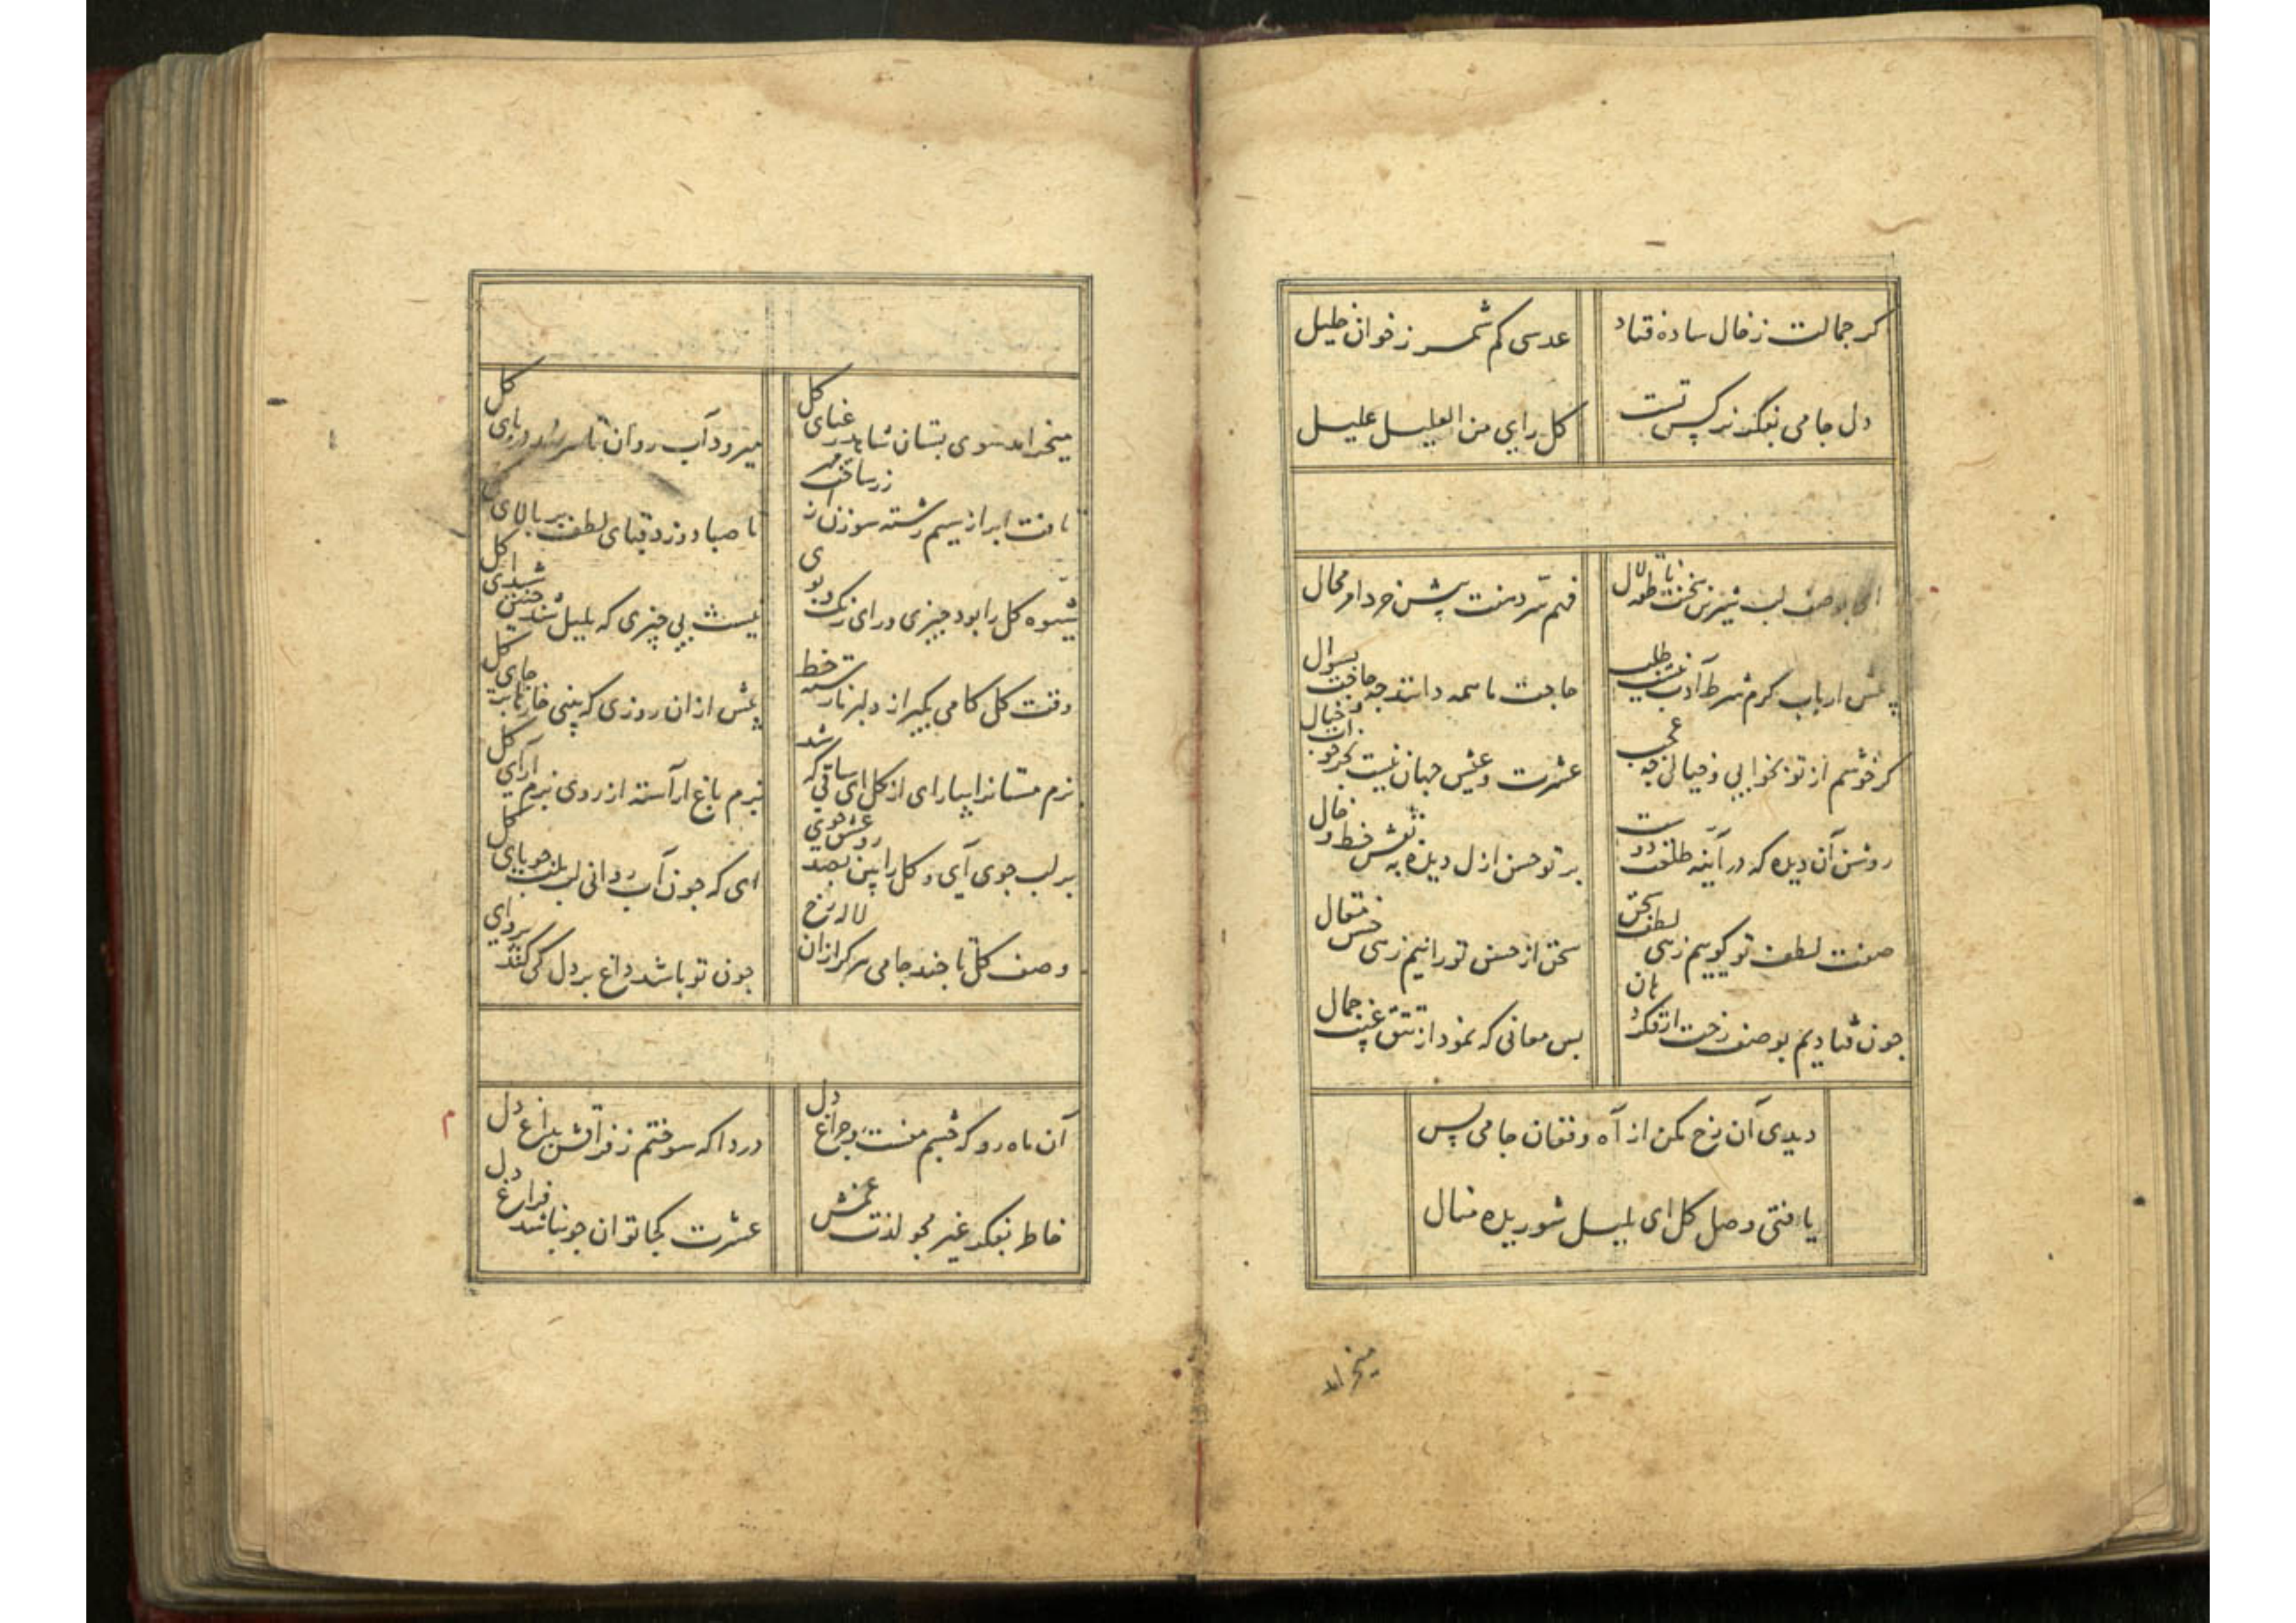 کر جمالت ز خال ساده فتاد
عدسی کم شمر ز خوان خلیل
دل جامی بفکر نرکس تست
کل رای من العلیل علیل
ای بوصف لب شیرین سخنت ناطقه لال
فهم سر دهنت پیش خرد امر محال
پیش ارباب کرم شرط ادب نیست طلب
حاجت ما همه دانند چه حاجت بسوال
کر خوشم از تو بخوابی و خیالی چه عجب
عشرت و عیش جهان نیست بجز خواب و خیال
روشن آن دیده که در آینه طلعت دوست
پرتو حسن ازل دیده به نقش خط و خال
صفت لطف تو کوییم زهی لطف سخن
سخن از حسن تو رانیم زهی حسن مقال
چون فتادیم بوصف رخت از فکر دهان
بس معانی که نمود از تتق غیب جمال
دیدی آن رخ مکن از آه و فغان جامی بس
یافتی وصل کل ای بلبل شوریده منال
میخرامد
میخرامد سوی بستان شاهد رعنای کل
میرود آب روان تا سر نهد در پای کل
بافت ابر از سیم رشته سوزن از زر ساخت مهر
تا صبا دوزد قبای لطف بر بالای کل
شیوه کل را بود چیزی ورای رنک و بوی
نیست بی چیزی که بلبل شد چنین شیدای کل
وقت کل کامی بکیر از دلبر نارسته خط
پیش از آن روزی که بینی خار نا بر جای کل
بزم مستانرا بیارای از کل ای ساقی که شد
بزم باغ آراسته از روی بزم آرای کل
بر لب جوی آی و کل را بین بصد روش جوی عیش
ای که چون آب روانی لب بلب جویای کل
وصف کل تا چند جامی هرکز از آن لاله رخ
چون تو باشد داغ بر دل کی کند پروای کل
آن ماه رو که چشم منست و چراغ دل
دردا که سوختم ز فراقش بداغ دل
خاطر بفکر غیر مجو لذت غمش
عشرت کجا توان چو نباشد فراغ دل